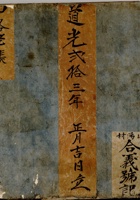 合義號記
道光弍拾三年 正月吉日立